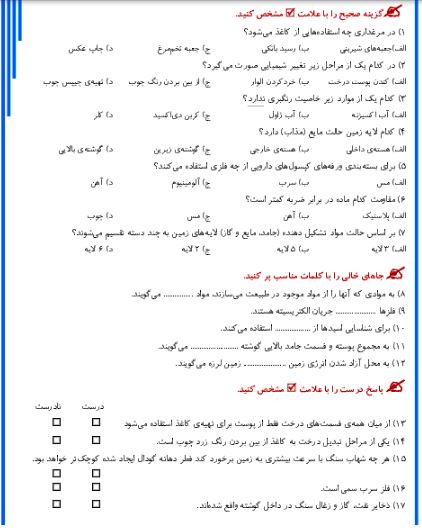 گزینه صحیح را با علامت ☑ مشخص کنید.
۱) در مرغداری چه استفاده‌هایی از کاغذ می‌شود؟
الف)جعبه‌های شیرینی ب) رسید بانکی ج) جعبه تخم‌مرغ د) چاپ عکس
۲) در کدام یک از مراحل زیر تغییر شیمیایی صورت می‌گیرد؟
الف) کندن پوست درخت ب) خردکردن الوار ج) از بین بردن رنگ چوب د) تهیه‌ی چیپس چوب
۳) کدام یک از موارد زیر خاصیت رنگبری ندارد؟
الف) آب اکسیژنه ب) آب ژاول ج) کربن دی‌اکسید د) کلر
۴) کدام لایه زمین حالت مایع (مذاب) دارد؟
الف) هسته‌ی داخلی ب) هسته‌ی خارجی ج) گوشته‌ی زیرین د) گوشته‌ی بالایی
۵) برای بسته‌بندی ورقه‌های کپسول‌های دارویی از چه فلزی استفاده می‌کنند؟
الف) مس ب) سرب ج) آلومینیوم د) آهن
۶) مقاومت کدام ماده در برابر ضربه کمتر است؟
الف) پلاستیک ب) آهن ج) مس د) چوب
۷) بر اساس حالت مواد تشکیل دهنده (جامد، مایع و گاز) لایه‌های زمین به چند دسته تقسیم می‌شوند؟
الف) ۳ لایه ب) ۵ لایه ج) ۲ لایه د) ۶ لایه
جاهای خالی را با کلمات مناسب پر کنید.
۸) به موادی که آنها را از مواد موجود در طبیعت می‌سازند، مواد ............ می‌گویند.
۹) فلزها ................ جریان الکتریسیته هستند.
۱۰) برای شناسایی اسیدها از ............... استفاده می‌کنند.
۱۱) به مجموع پوسته و قسمت جامد بالایی گوشته ................... می‌گویند.
۱۲) به محل آزاد شدن انرژی زمین ................. زمین لرزه می‌گویند.
پاسخ درست را با علامت ☑ مشخص کنید.
درست نادرست
۱۳) از میان همه‌ی قسمت‌های درخت فقط از پوست برای تهیه‌ی کاغذ استفاده می‌شود
۱۴) یکی از مراحل تبدیل درخت به کاغذ از بین بردن رنگ زرد چوب است.
۱۵) هر چه شهاب سنگ با سرعت بیشتری به زمین برخورد کند قطر دهانه گودال ایجاد شده کوچک‌تر خواهد بود.
۱۶) فلز سرب سمی است.
۱۷) ذخایر نفت، گاز و زغال سنگ در داخل گوشته واقع شده‌اند.